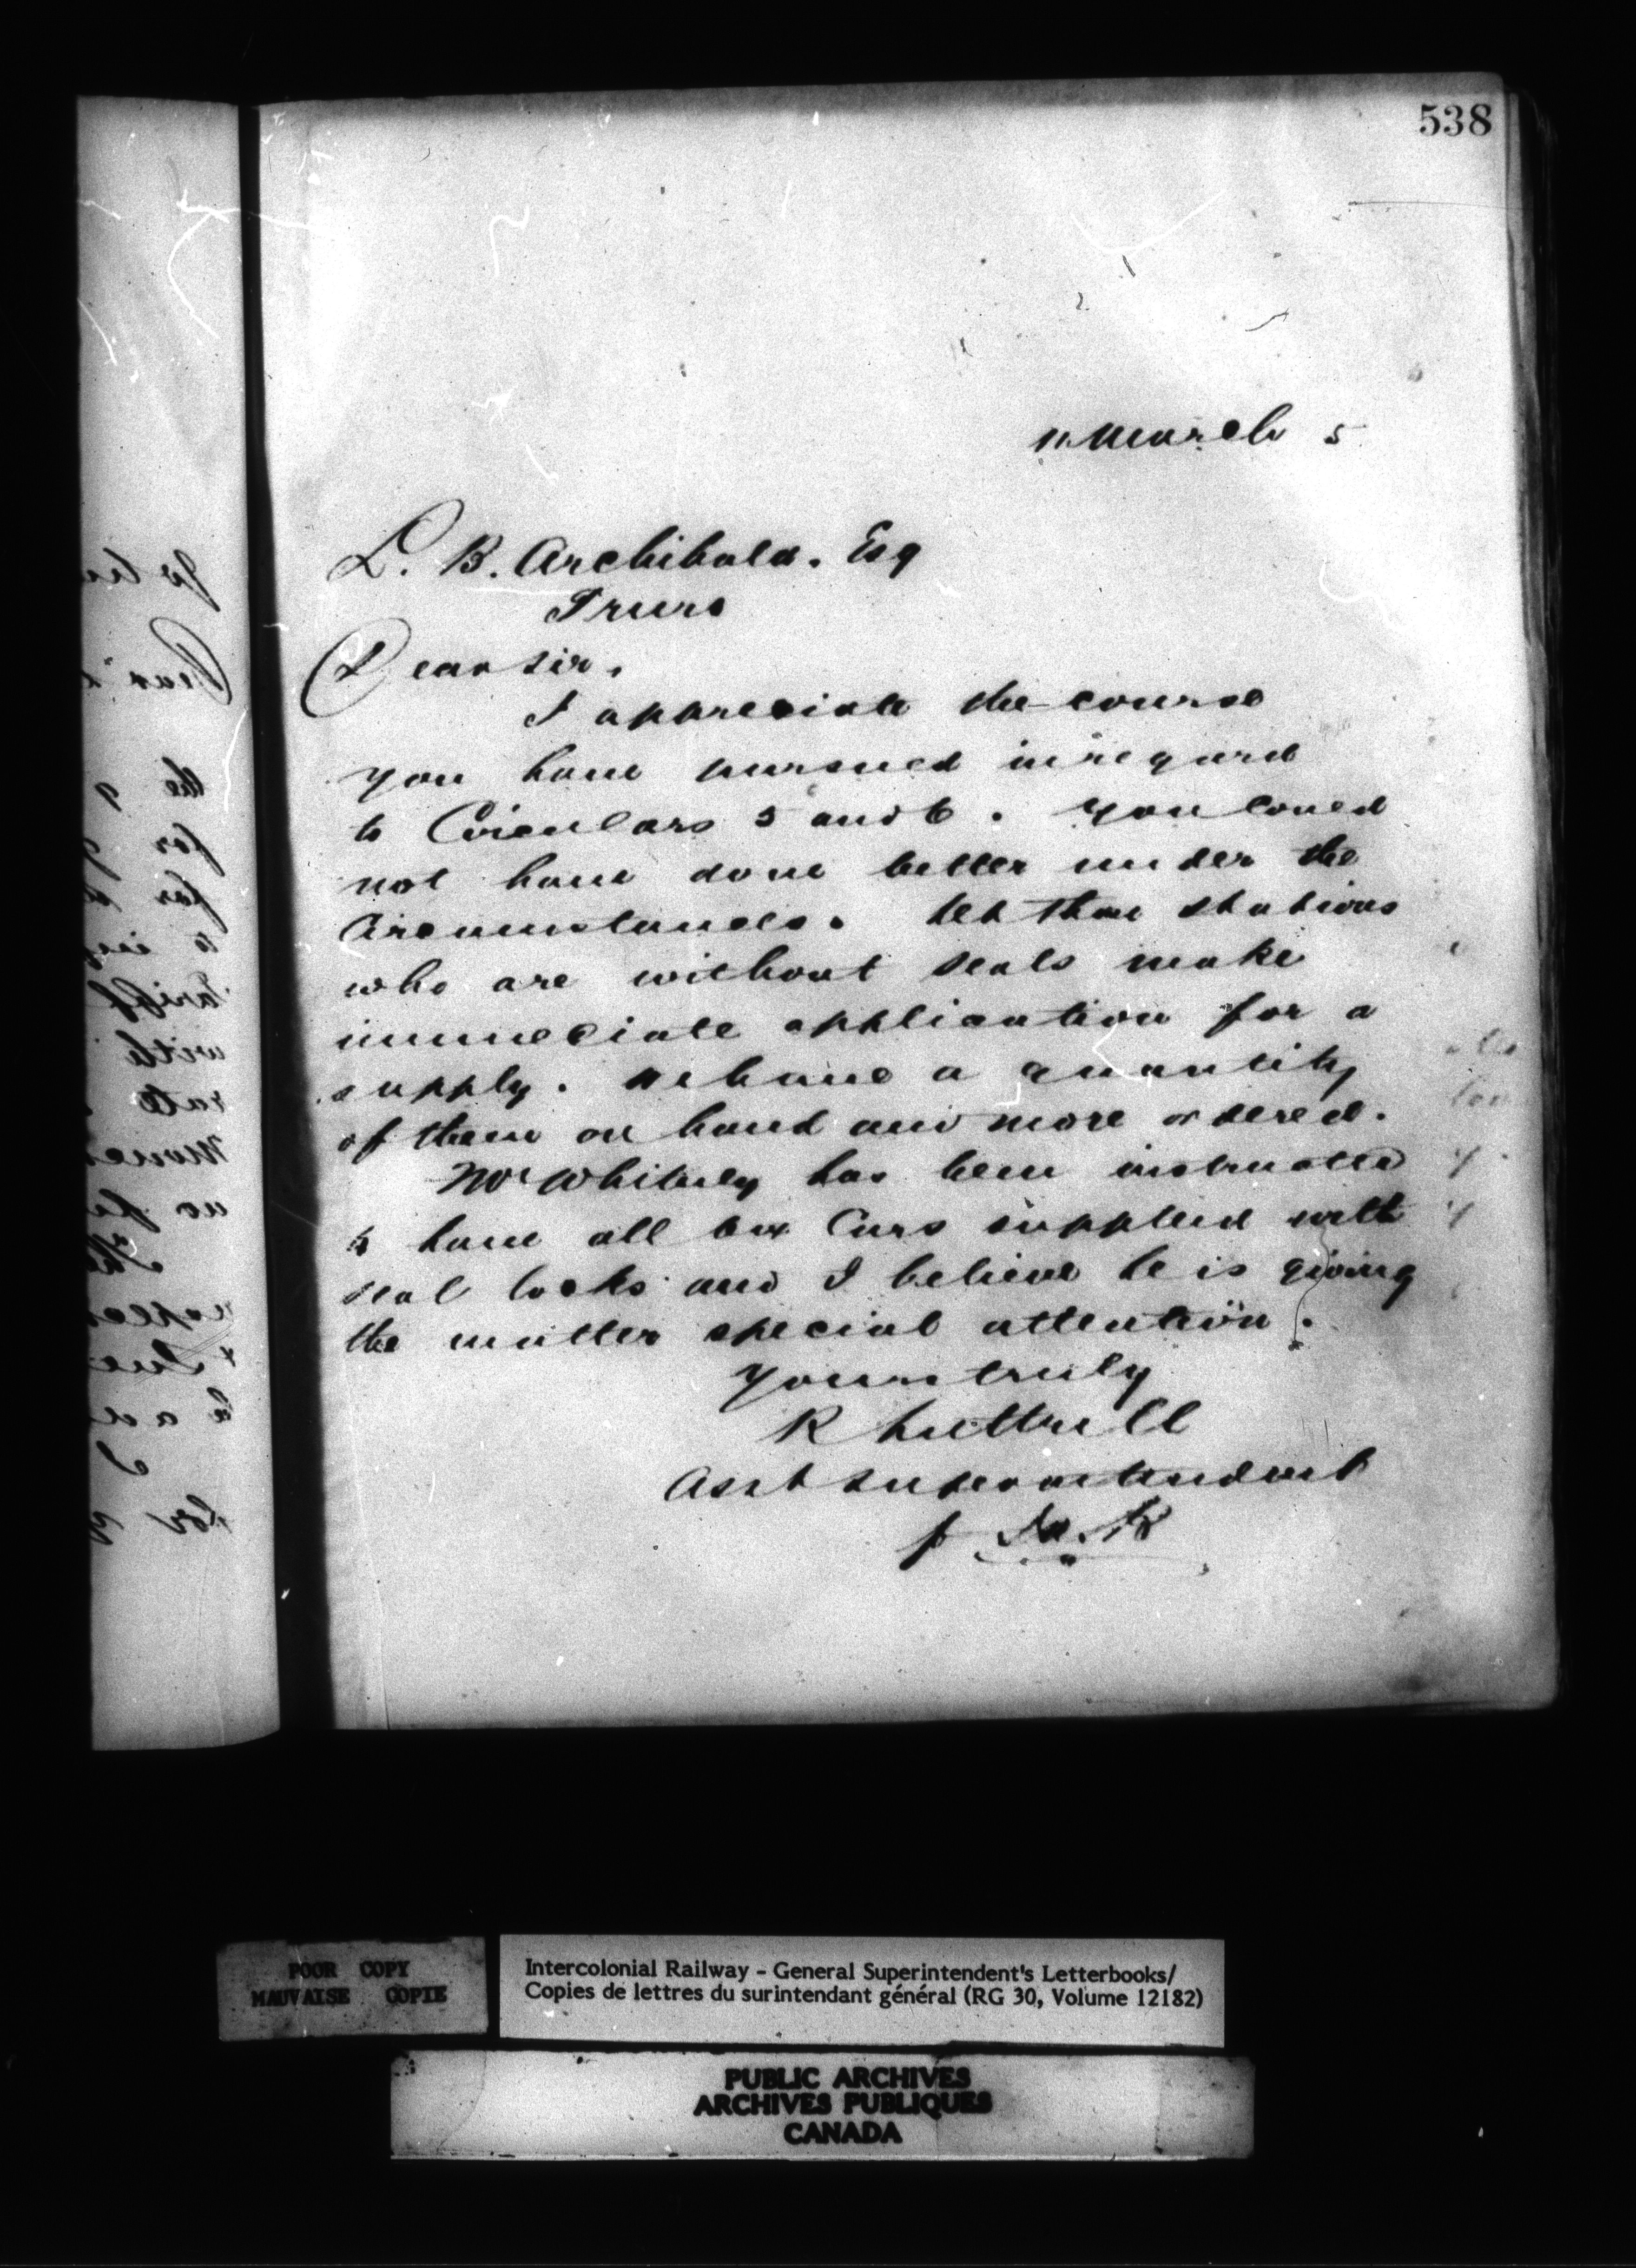 538
11 March 5
L. B. Archibald. Esq
Truro
Dear Sir,
I appreciate the course
you have pursued in regard
to Circulars 5 and 6. You coued
not have done better under the
Circumstances. Let those stations
who are without seals make
immediate application for a
supply. We have a quantity
of them on hand and more ordered.
Mr Whitney has been instructed
to have all box Cars supplied with
seal locks and I believe he is giving
the matter special attention.
Yours truly
R Luttrell
Asst Superintendent
POOR COPY
MAUVAISE COPIE
Intercolonial Railway - General Superintendent's Letterbooks/
Copies de lettres du surintendant général (RG 30, Volume 12182)
PUBLIC ARCHIVES
ARCHIVES PUBLIQUES
CANADA